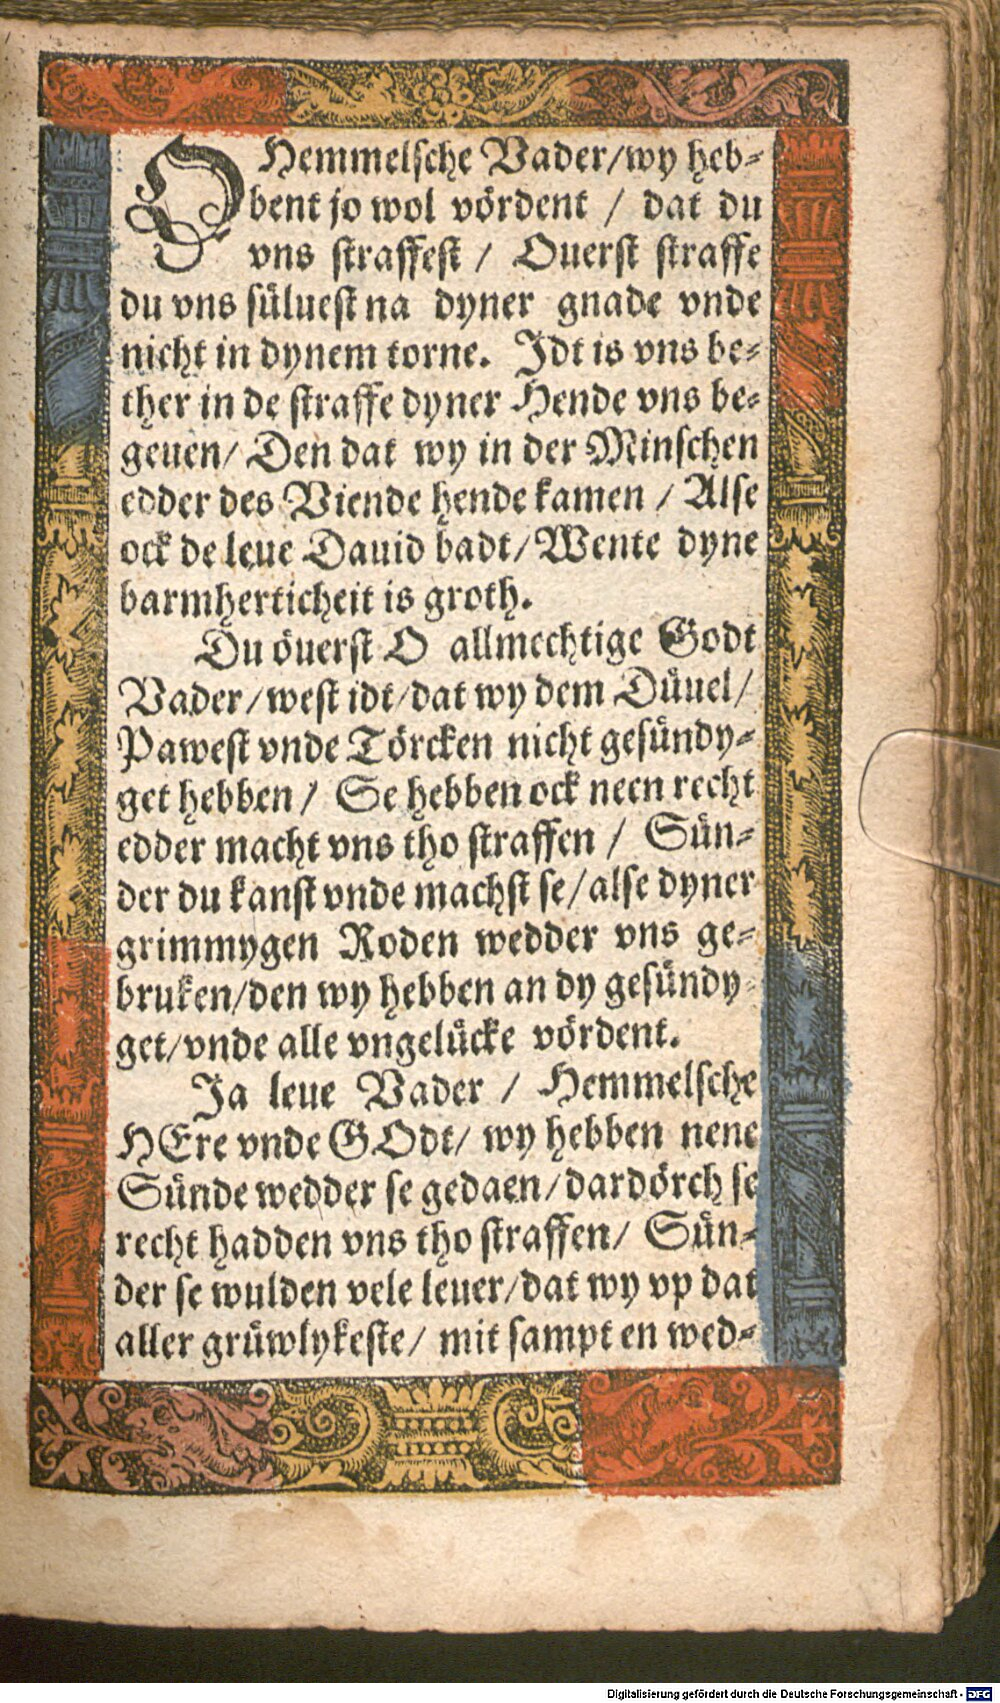 O Hemmelsche Vader/wy heb-
bent jo wol vördent / dat du
vns straffest / Ouerst straffe
du vns süluest na dyner gnade vnde
nicht in dynem torne. Idt is vns be-
ther in de straffe dyner Hende vns be-
geuen/ Den dat wy in der Minschen
edder des Viende hende kamen / Alse
ock de leue Dauid badt/ Wente dyne
barmherticheit is groth.
Du öuerst O allmechtige Godt
Vader/west idt/dat wy dem Düuel/
Pawest vnde Törcken nicht gesündy-
get hebben / Se hebben ock neen recht
edder macht vns tho straffen / Sün-
der du kanst vnde machst se/alse dyner
grimmygen Roden wedder vns ge-
bruken/den wy hebben an dy gesündy-
get/vnde alle vngelücke vördent.
Ja leue Vader / Hemmelsche
HEre vnde GOdt/ wy hebben nene
Sünde wedder se gedaen/dardörch se
recht hadden vns tho straffen/ Sün-
der se wulden vele leuer/dat wy vp dat
aller grüwlykeste/ mit sampt en wed-
Digitalisierung gefördert durch die Deutsche Forschungsgemeinschaft - DFG